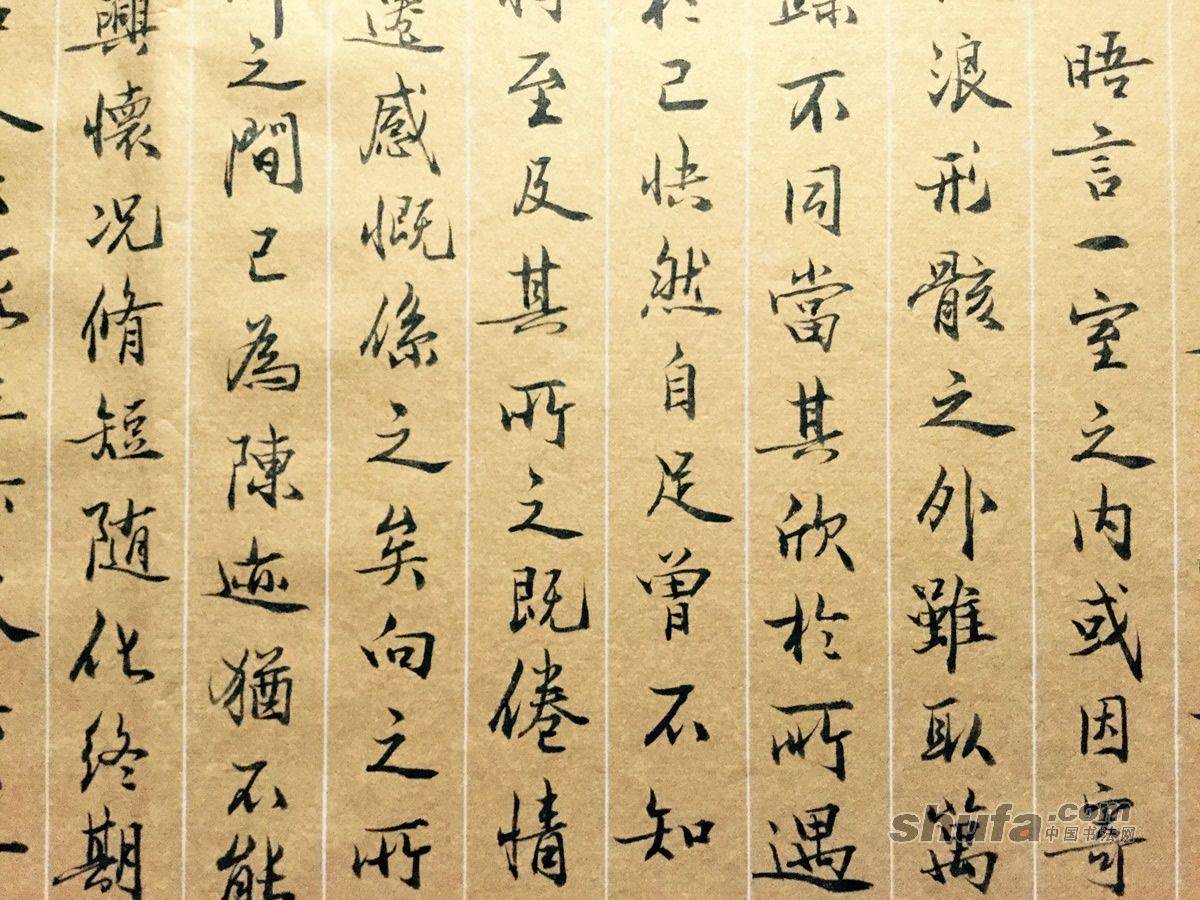 晤言一室之内或因寄
浪形骸之外雖取萬
不同當其欣於所遇
於己快然自足曾不知
至及其所之既倦情
遷感慨係之矣向之所
之間已為陳迹猶不能
興懷况脩短随化終期
shufa.com
中国书法网